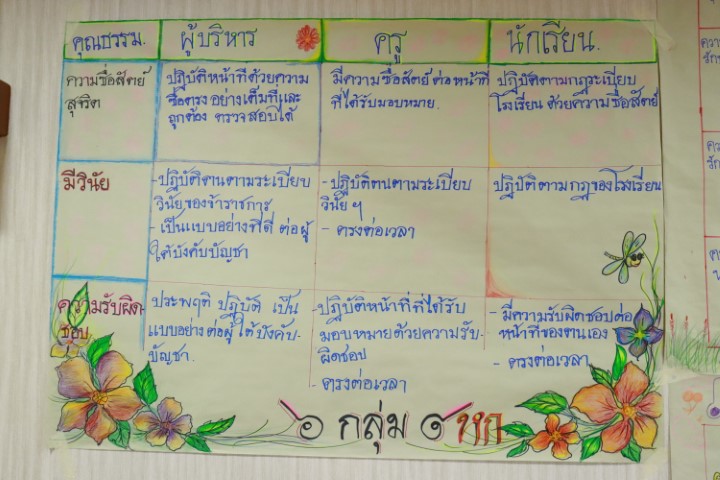 คุณธรรม. ผู้บริหาร ครู นักเรียน.
ความซื่อสัตย์
สุจริต
ปฏิบัติหน้าที่ด้วยความ
ซื่อตรง อย่างเต็มที่และ
ถูกต้อง ตรวจสอบได้
มีความซื่อสัตย์ ต่อหน้าที่
ที่ได้รับมอบหมาย.
ปฏิบัติตามกฎระเบียบ
โรงเรียน ด้วยความซื่อสัตย์
มีวินัย
- ปฏิบัติตนตามระเบียบ
วินัยของข้าราชการ
- เป็นแบบอย่างที่ดี ต่อผู้
ใต้บังคับบัญชา
- ปฏิบัติตนตามระเบียบ
วินัย ฯ
- ตรงต่อเวลา
ปฏิบัติตามกฎของโรงเรียน
ความรับผิด-
ชอบ
ประพฤติ ปฏิบัติ เป็น
แบบอย่าง ต่อผู้ใต้บังคับ-
บัญชา.
- ปฏิบัติหน้าที่ที่ได้รับ
มอบหมายด้วยความรับ-
ผิดชอบ
- ตรงต่อเวลา
- มีความรับผิดชอบต่อ
หน้าที่ของตนเอง
- ตรงต่อเวลา
๖ กลุ่ม ๑ หก